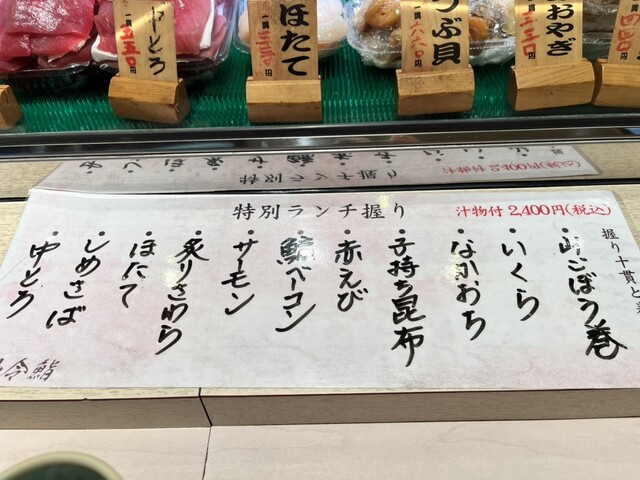 中とろ
一貫 五五〇円
ほたて
一貫 三三〇円
つぶ貝
おやぎ
特別ランチ握り
汁物付 2,400円(税込)
握り十貫と
・山ごぼう巻
・いくら
・なかおち
・子持ち昆布
・赤えび
・鯨ベーコン
・サーモン
・炙りさわら
・ほたて
・しめさば
・中とろ
冷鮨